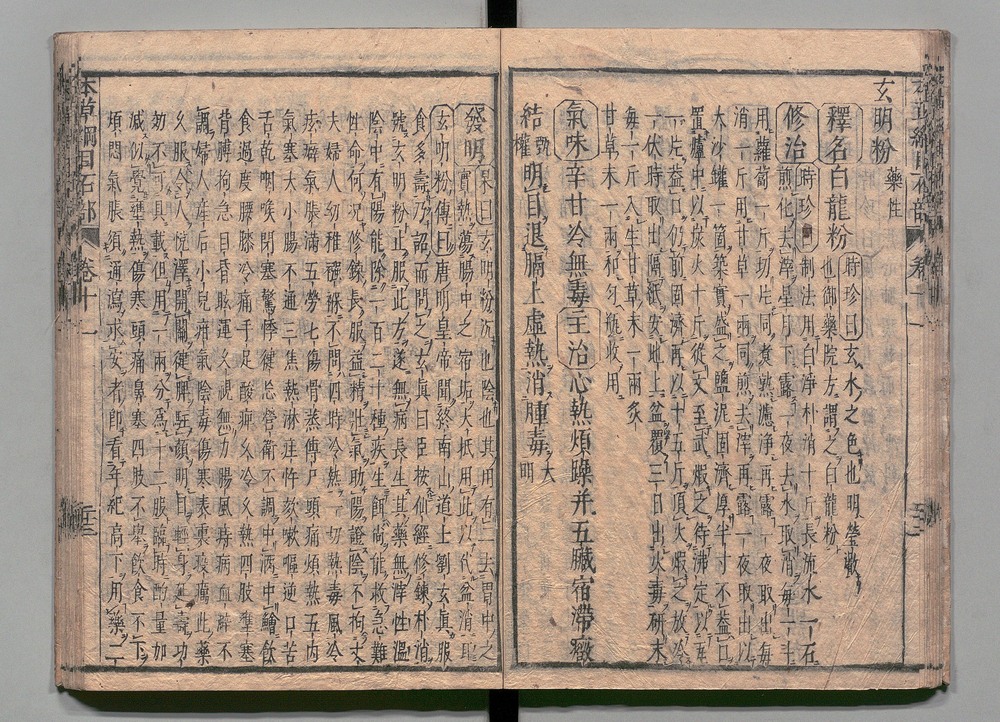 玄明粉 藥性
釋名 白龍粉 時珍曰玄水之色也明瑩澈也御藥院方謂之白龍粉
修治 時珍曰制法用白淨朴消十斤長流水一石
煎化去滓星月下露一夜去水取消每一斗
用蘿蔔一斤切片同煮熟濾淨再露一夜取出每
消一斤用甘草一兩同煎去滓再露一夜取出以
大沙罐一箇築實盛之鹽泥固濟厚半寸不蓋口
置爐中以炭火十斤從文至武煅之待沸定以瓦
一片蓋口仍前固濟再以十五斤頂火煅之放冷
一伏時取出隔紙安地上盆覆三日出火毒研末
每一斤入生甘草末一兩炙
甘草末一兩和勻瓶收用
氣味 辛甘冷無毒 主治 心熱煩躁并五臟宿滯癥
結 甄權 明目退膈上虛熱消腫毒 大明
發明 杲曰玄明粉沉也陰也其用有二去胃中之
實熱蕩腸中之宿垢大抵用此以代盆消耳
玄明粉傳曰唐明皇帝聞終南山道士劉玄真服
食多壽乃詔而問之玄真曰臣按仙經修鍊朴消
號玄明粉止服此方遂無病長生其藥無滓性溫
陰中有陽能除一百二十種疾生餌尚能救急難
性命何況修鍊長服益精壯氣助陽證陰不拘丈
夫婦人幼稚襁褓不問四時冷熱一切熱毒風冷
痃癖氣脹滿五勞七傷骨蒸傳尸頭痛煩熱五內
氣塞大小腸不通三焦熱淋疰忤欬嗽嘔逆口苦
舌乾咽喉閉塞驚悸健忘營衛不調中酒中鱠飲
食過度腰膝冷痛手足酸痹久冷久熱四肢壅塞
背膊拘急目昏眩運久視無力腸風痔病血澼不
調婦人產后小兒疳氣陰毒傷寒表裏疫癘此藥
久服令人悅澤開關健脾駐顏明目輕身延壽功
効不可具載但用一兩分為十二服臨時酌量加
減似覺壅熱傷寒頭痛鼻塞四肢不舉飲食不下
煩悶氣脹須通瀉求安者即看年紀高下用藥二
本草綱目石部 卷十一